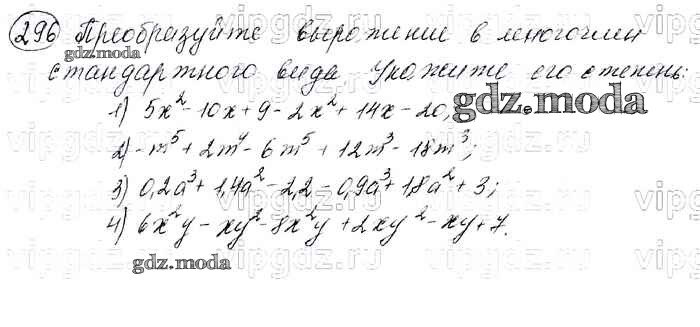 296 Преобразуйте выражение в многочлен
стандартного вида. Укажите его степень:
1) 5x² - 10x + 9 - 2x² + 14x - 20;
2) -m⁵ + 2m⁴ - 6m⁵ + 12m³ - 18m³;
3) 0,2a³ + 1,4a² - 2,2 - 0,9a³ + 1,8a² + 3;
4) 6x²y - xy² - 8x²y + 2xy² - xy + 7.
gdz.moda
gdz.moda
gdz.moda
gdz.moda
vipgdz.ru